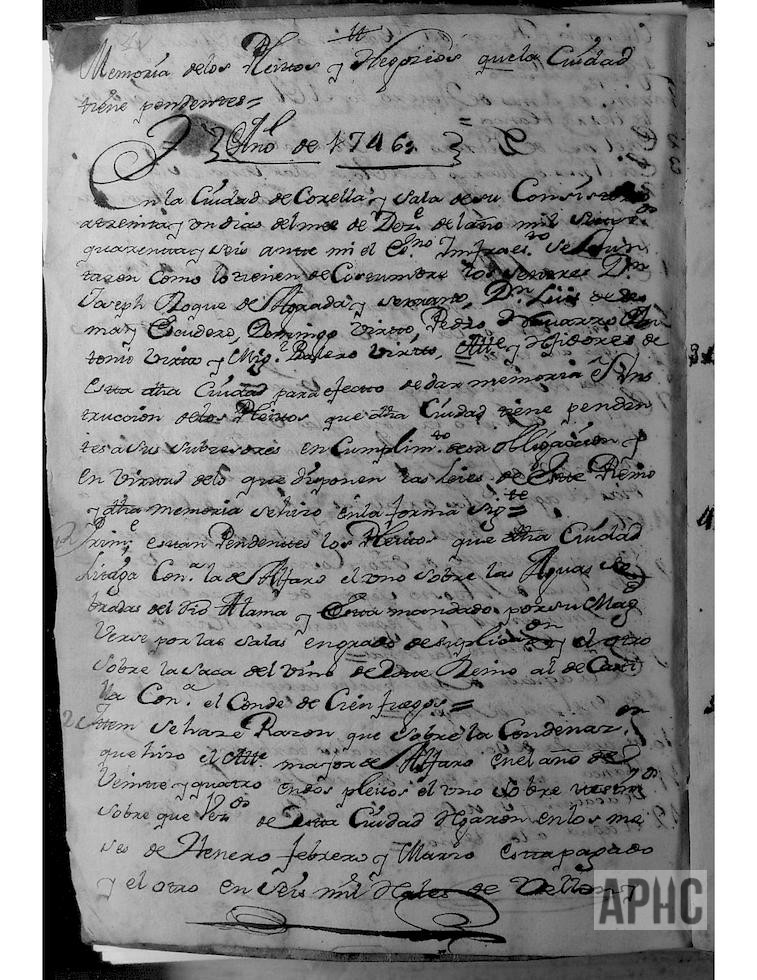 tt
Memoria de los Pleitos y Negocios que la Ciudad
tiene pendentes =
Año de 1746
En la Ciudad de Corella y Sala de su Consistorio
a treinta y un dias del mes de Dez.e del año mil Setez.os
quarenta y seis ante mi el Ess.no Infraes.to se Jun
taron como lo tienen de Costumbre los Señores Dn
Joseph Roque de Agrada y Serrano, Dn Luis de
ma y Escudero, Domingo Virto, Pedro Navarro An
tonio Virto y Mig.l Virto, Alle. y Rejidores de
Esta dha Ciudad para efecto de dar memoria e Ins
truccion de los Pleitos que dha Ciudad tiene pendien
tes a sus subzesores en Cumplim.to de su obligacion y
en virtud de lo que disponen las Leies de Este Reino
y dha memoria se hizo en la forma sig.te =
Prim.e estan Pendentes los Pleitos que dha Ciudad
Litiga Con.a la de Alfaro el uno sobre las Aguas So
bradas del Rio Alama y Esta mandado por su Mag.d
Verse por las Salas en grado de suplicaz.on y el otro
sobre la Saca del vino de Este Reino al de Casti
lla Con.a el Conde de Cienfuegos =
2 Ittem se haze Razon que sobre la Condenaz.on
que hizo el Alle. maior de Alfaro en el año de
Veinte y quatro en dos pleitos el uno sobre
sobre que Vez.os de Esta Ciudad en los me
ses de Henero febrero y Marzo esta pagado
y el otro en Seis mil Rales de Vellon y
APHC